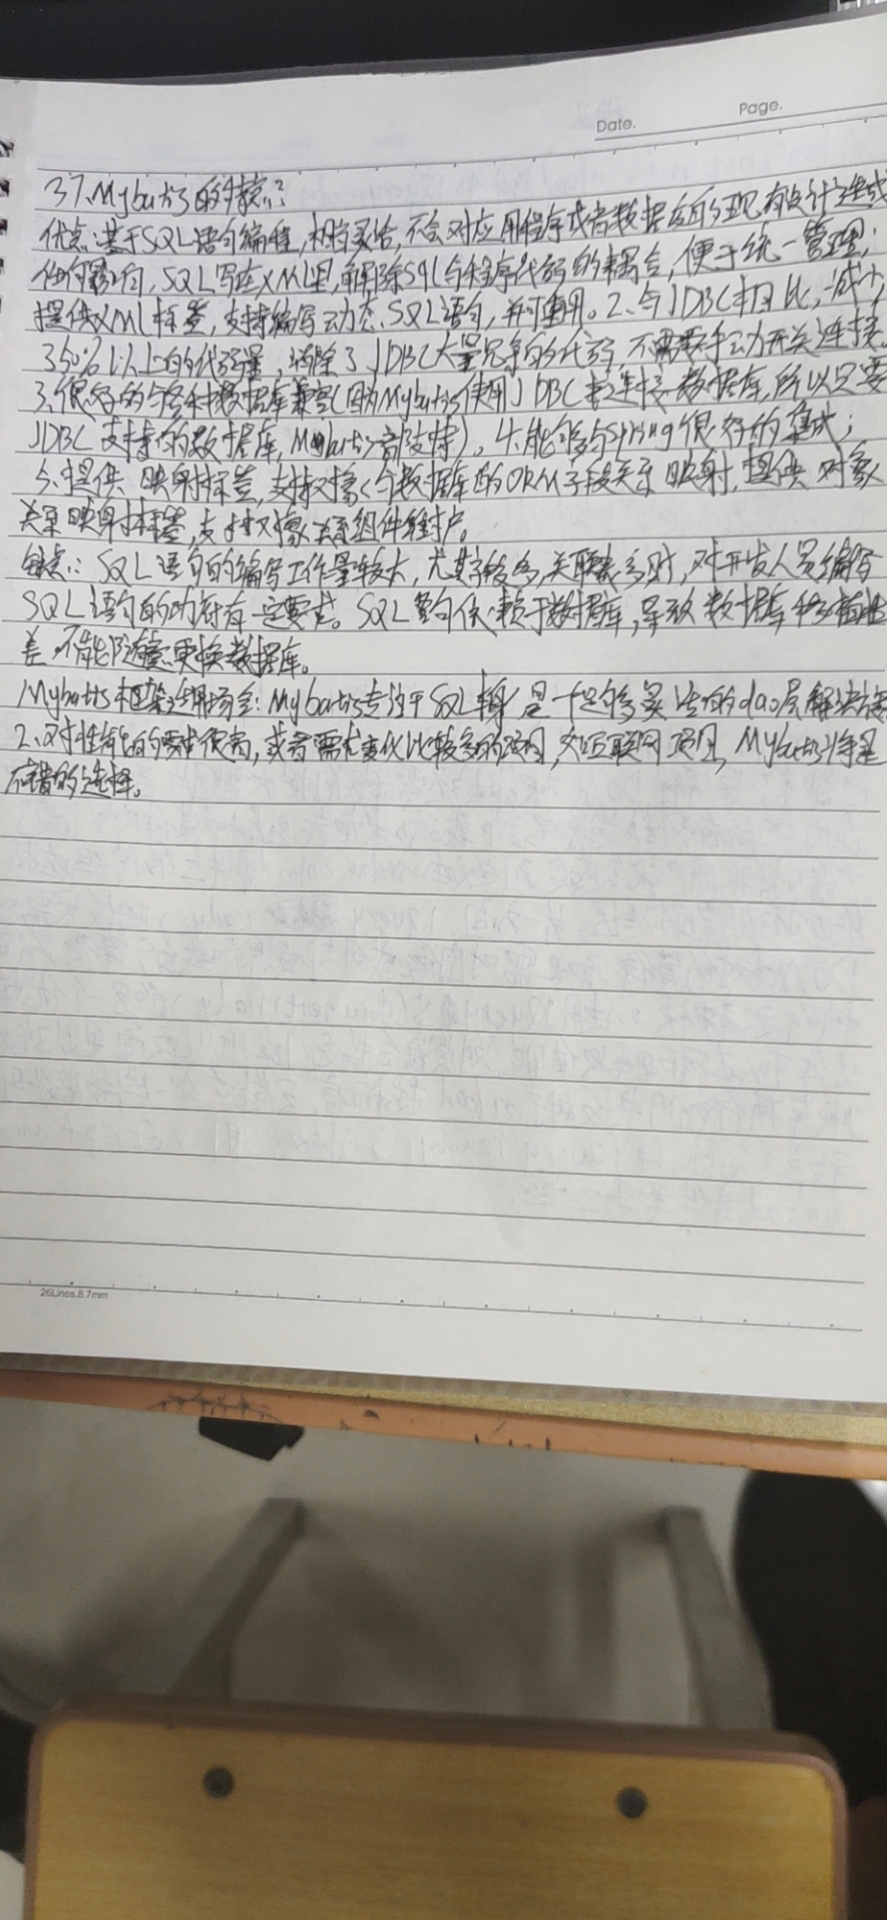 Date.
Page.
37.Mybatis的优缺点:?
优点:基于SQL语句编程,相当灵活,不会对应用程序或者数据库的现有设计造成
任何影响,SQL写在XML里,解除sql与程序代码的耦合,便于统一管理;
提供XML标签,支持编写动态SQL语句,并可重用。2.与JDBC相比,减少
了50%以上的代码量,消除了JDBC大量冗余的代码,不需要手动开关连接
3.很好的与各种数据库兼容(因为Mybatis使用JDBC来连接数据库,所以只要
JDBC支持的数据库,Mybatis都支持)。4.能够与Spring很好的集成;
5.提供映射标签,支持对象与数据库的ORM字段关系映射,提供对象
关系映射标签,支持对象关系组件维护。
缺点:SQL语句的编写工作量较大,尤其字段多,关联表多时,对开发人员编写
SQL语句的功底有一定要求。SQL语句依赖于数据库,导致数据库移植性
差,不能随意更换数据库。
Mybatis框架适用场合:Mybatis专注于SQL本身,是一个足够灵活的dao层解决方案
2.对性能的要求很高,或者需求变化比较多的项目,如互联网项目,Mybatis将是
不错的选择。
26Lines.8.7mm